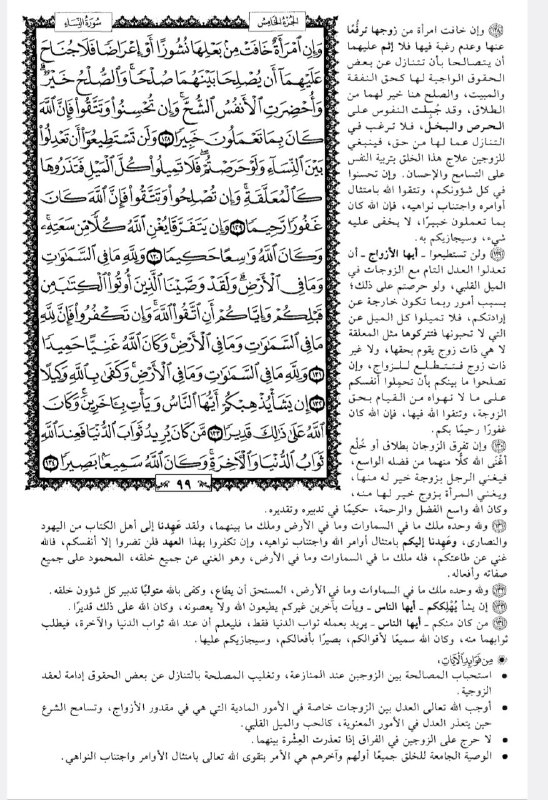 الجزء الخامس
سورة النساء
وَإِنِ ٱمْرَأَةٌ خَافَتْ مِنۢ بَعْلِهَا نُشُوزًا أَوْ إِعْرَاضًا فَلَا جُنَاحَ
عَلَيْهِمَآ أَن يُصْلِحَا بَيْنَهُمَا صُلْحًا ۚ وَٱلصُّلْحُ خَيْرٌ ۗ
وَأُحْضِرَتِ ٱلْأَنفُسُ ٱلشُّحَّ ۚ وَإِن تُحْسِنُوا۟ وَتَتَّقُوا۟ فَإِنَّ ٱللَّهَ
كَانَ بِمَا تَعْمَلُونَ خَبِيرًا ١٢٨ وَلَن تَسْتَطِيعُوٓا۟ أَن تَعْدِلُوا۟
بَيْنَ ٱلنِّسَآءِ وَلَوْ حَرَصْتُمْ ۖ فَلَا تَمِيلُوا۟ كُلَّ ٱلْمَيْلِ فَتَذَرُوهَا
كَٱلْمُعَلَّقَةِ ۚ وَإِن تُصْلِحُوا۟ وَتَتَّقُوا۟ فَإِنَّ ٱللَّهَ كَانَ
غَفُورًا رَّحِيمًا ١٢٩ وَإِن يَتَفَرَّقَا يُغْنِ ٱللَّهُ كُلًّا مِّن سَعَتِهِۦ ۚ
وَكَانَ ٱللَّهُ وَٰسِعًا حَكِيمًا ١٣٠ وَلِلَّهِ مَا فِى ٱلسَّمَٰوَٰتِ
وَمَا فِى ٱلْأَرْضِ ۗ وَلَقَدْ وَصَّيْنَا ٱلَّذِينَ أُوتُوا۟ ٱلْكِتَٰبَ مِن
قَبْلِكُمْ وَإِيَّاكُمْ أَنِ ٱتَّقُوا۟ ٱللَّهَ ۚ وَإِن تَكْفُرُوا۟ فَإِنَّ لِلَّهِ
مَا فِى ٱلسَّمَٰوَٰتِ وَمَا فِى ٱلْأَرْضِ ۚ وَكَانَ ٱللَّهُ غَنِيًّا حَمِيدًا
١٣١ وَلِلَّهِ مَا فِى ٱلسَّمَٰوَٰتِ وَمَا فِى ٱلْأَرْضِ ۚ وَكَفَىٰ بِٱللَّهِ وَكِيلًا
١٣٢ إِن يَشَأْ يُذْهِبْكُمْ أَيُّهَا ٱلنَّاسُ وَيَأْتِ بِـَٔاخَرِينَ ۚ وَكَانَ
ٱللَّهُ عَلَىٰ ذَٰلِكَ قَدِيرًا ١٣٣ مَّن كَانَ يُرِيدُ ثَوَابَ ٱلدُّنْيَا فَعِندَ ٱللَّهِ
ثَوَابُ ٱلدُّنْيَا وَٱلْـَٔاخِرَةِ ۚ وَكَانَ ٱللَّهُ سَمِيعًۢا بَصِيرًا ١٣٤
٩٩
١٢٨ وإن خافت امرأة من زوجها ترفُّعًا
عنها وعدم رغبة فيها فلا إثم عليهما
أن يتصالحا بأن تتنازل عن بعض
الحقوق الواجبة لها كحق النفقة
والمبيت، والصلح هنا خير لهما من
الطلاق، وقد جُبِلت النفوس على
الحرص والبخل، فلا ترغب في
التنازل عما لها من حق، فينبغي
للزوجين علاج هذا الخلق بتربية النفس
على التسامح والإحسان. وإن تحسنوا
في كل شؤونكم، وتتقوا الله بامتثال
أوامره واجتناب نواهيه، فإن الله كان
بما تعملون خبيرًا، لا يخفى عليه
شيء، وسيجازيكم به.
١٢٩ ولن تستطيعوا - أيها الأزواج - أن
تعدلوا العدل التام مع الزوجات في
الميل القلبي، ولو حرصتم على ذلك؛
بسبب أمور ربما تكون خارجة عن
إرادتكم، فلا تميلوا كل الميل عن
التي لا تحبونها فتتركوها مثل المعلقة
لا هي ذات زوج يقوم بحقها، ولا غير
ذات زوج فتتطلع للزواج، وإن
تصلحوا ما بينكم بأن تحملوا أنفسكم
على ما لا تهواه من القيام بحق
الزوجة، وتتقوا الله فيها، فإن الله كان
غفورًا رحيمًا بكم.
١٣٠ وإن تفرق الزوجان بطلاق أو خُلْع
أغْنَى الله كلًّا منهما من فضله الواسع،
فيغني الرجل بزوجة خير له منها،
ويغني المرأة بزوج خير لها منه،
وكان الله واسع الفضل والرحمة، حكيمًا في تدبيره وتقديره.
١٣١ ولله وحده ملك ما في السماوات وما في الأرض وملك ما بينهما، ولقد عَهِدنا إلى أهل الكتاب من اليهود
والنصارى، وعَهدنا إليكم بامتثال أوامر الله واجتناب نواهيه، وإن تكفروا بهذا العهد فلن تضروا إلا أنفسكم، فالله
غني عن طاعتكم، فله ملك ما في السماوات وما في الأرض، وهو الغني عن جميع خلقه، المحمود على جميع
صفاته وأفعاله.
١٣٢ ولله وحده ملك ما في السماوات وما في الأرض، المستحق أن يطاع، وكفى بالله متوليًا تدبير كل شؤون خلقه.
١٣٣ إن يشأ يُهْلِككم - أيها الناس - ويأت بآخرين غيركم يطيعون الله ولا يعصونه، وكان الله على ذلك قديرًا.
١٣٤ من كان منكم - أيها الناس - يريد بعمله ثواب الدنيا فقط، فليعلم أن عند الله ثواب الدنيا والآخرة، فيطلب
ثوابهما منه، وكان الله سميعًا لأقوالكم، بصيرًا بأفعالكم، وسيجازيكم عليها.
من فوائد الآيات:
• استحباب المصالحة بين الزوجين عند المنازعة، وتغليب المصلحة بالتنازل عن بعض الحقوق إدامة لعقد
الزوجية.
• أوجب الله تعالى العدل بين الزوجات خاصة في الأمور المادية التي هي في مقدور الأزواج، وتسامح الشرع
حين يتعذر العدل في الأمور المعنوية، كالحب والميل القلبي.
• لا حرج على الزوجين في الفراق إذا تعذرت العِشْرة بينهما.
• الوصية الجامعة للخلق جميعًا أولهم وآخرهم هي الأمر بتقوى الله تعالى بامتثال الأوامر واجتناب النواهي.